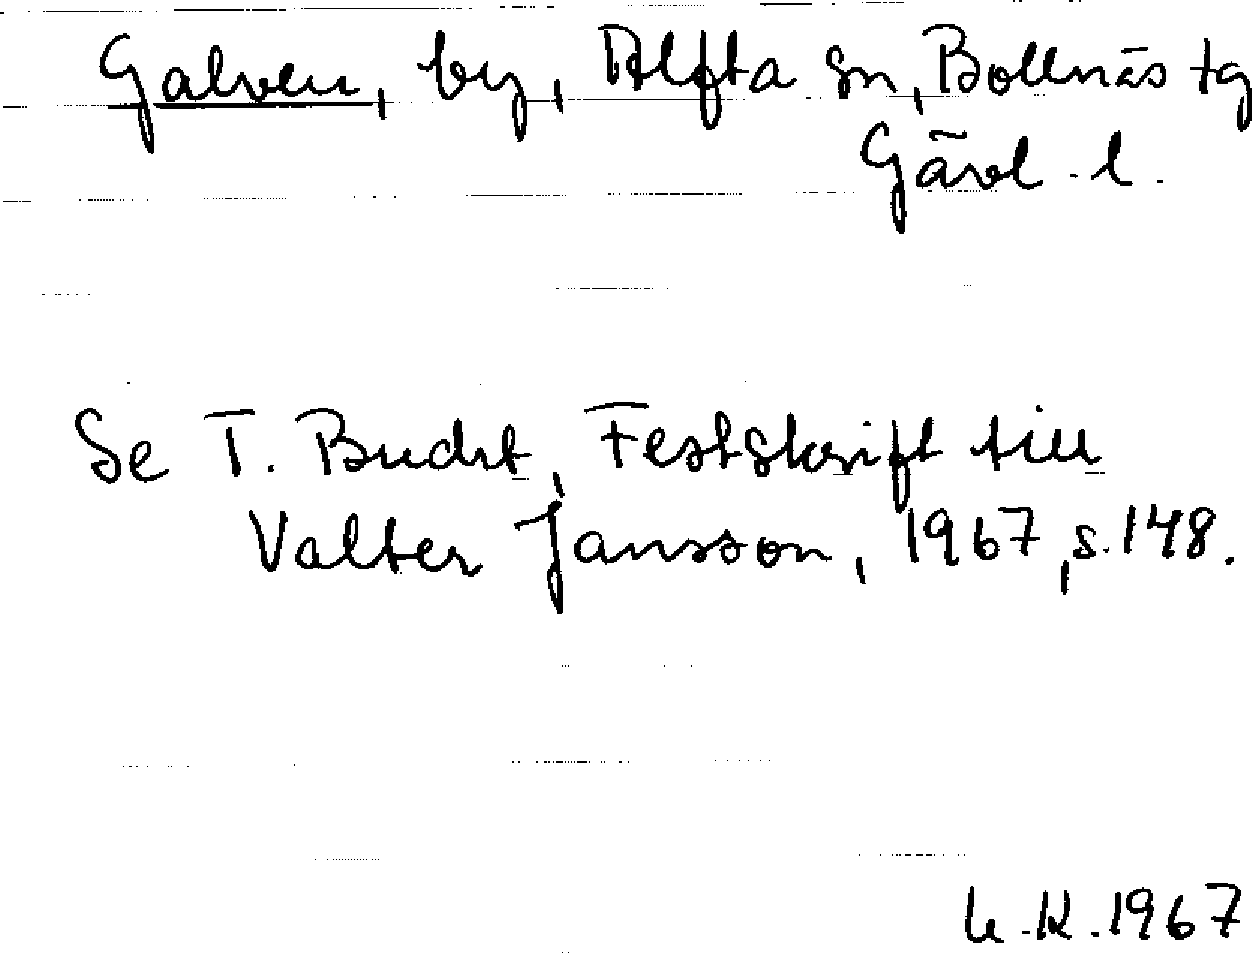 Galven, by, Alfta sn, Bollnäs tg
Gävl. l.
Se T. Bucht, Festskrift till
Valter Jansson, 1967, s. 148.
1967